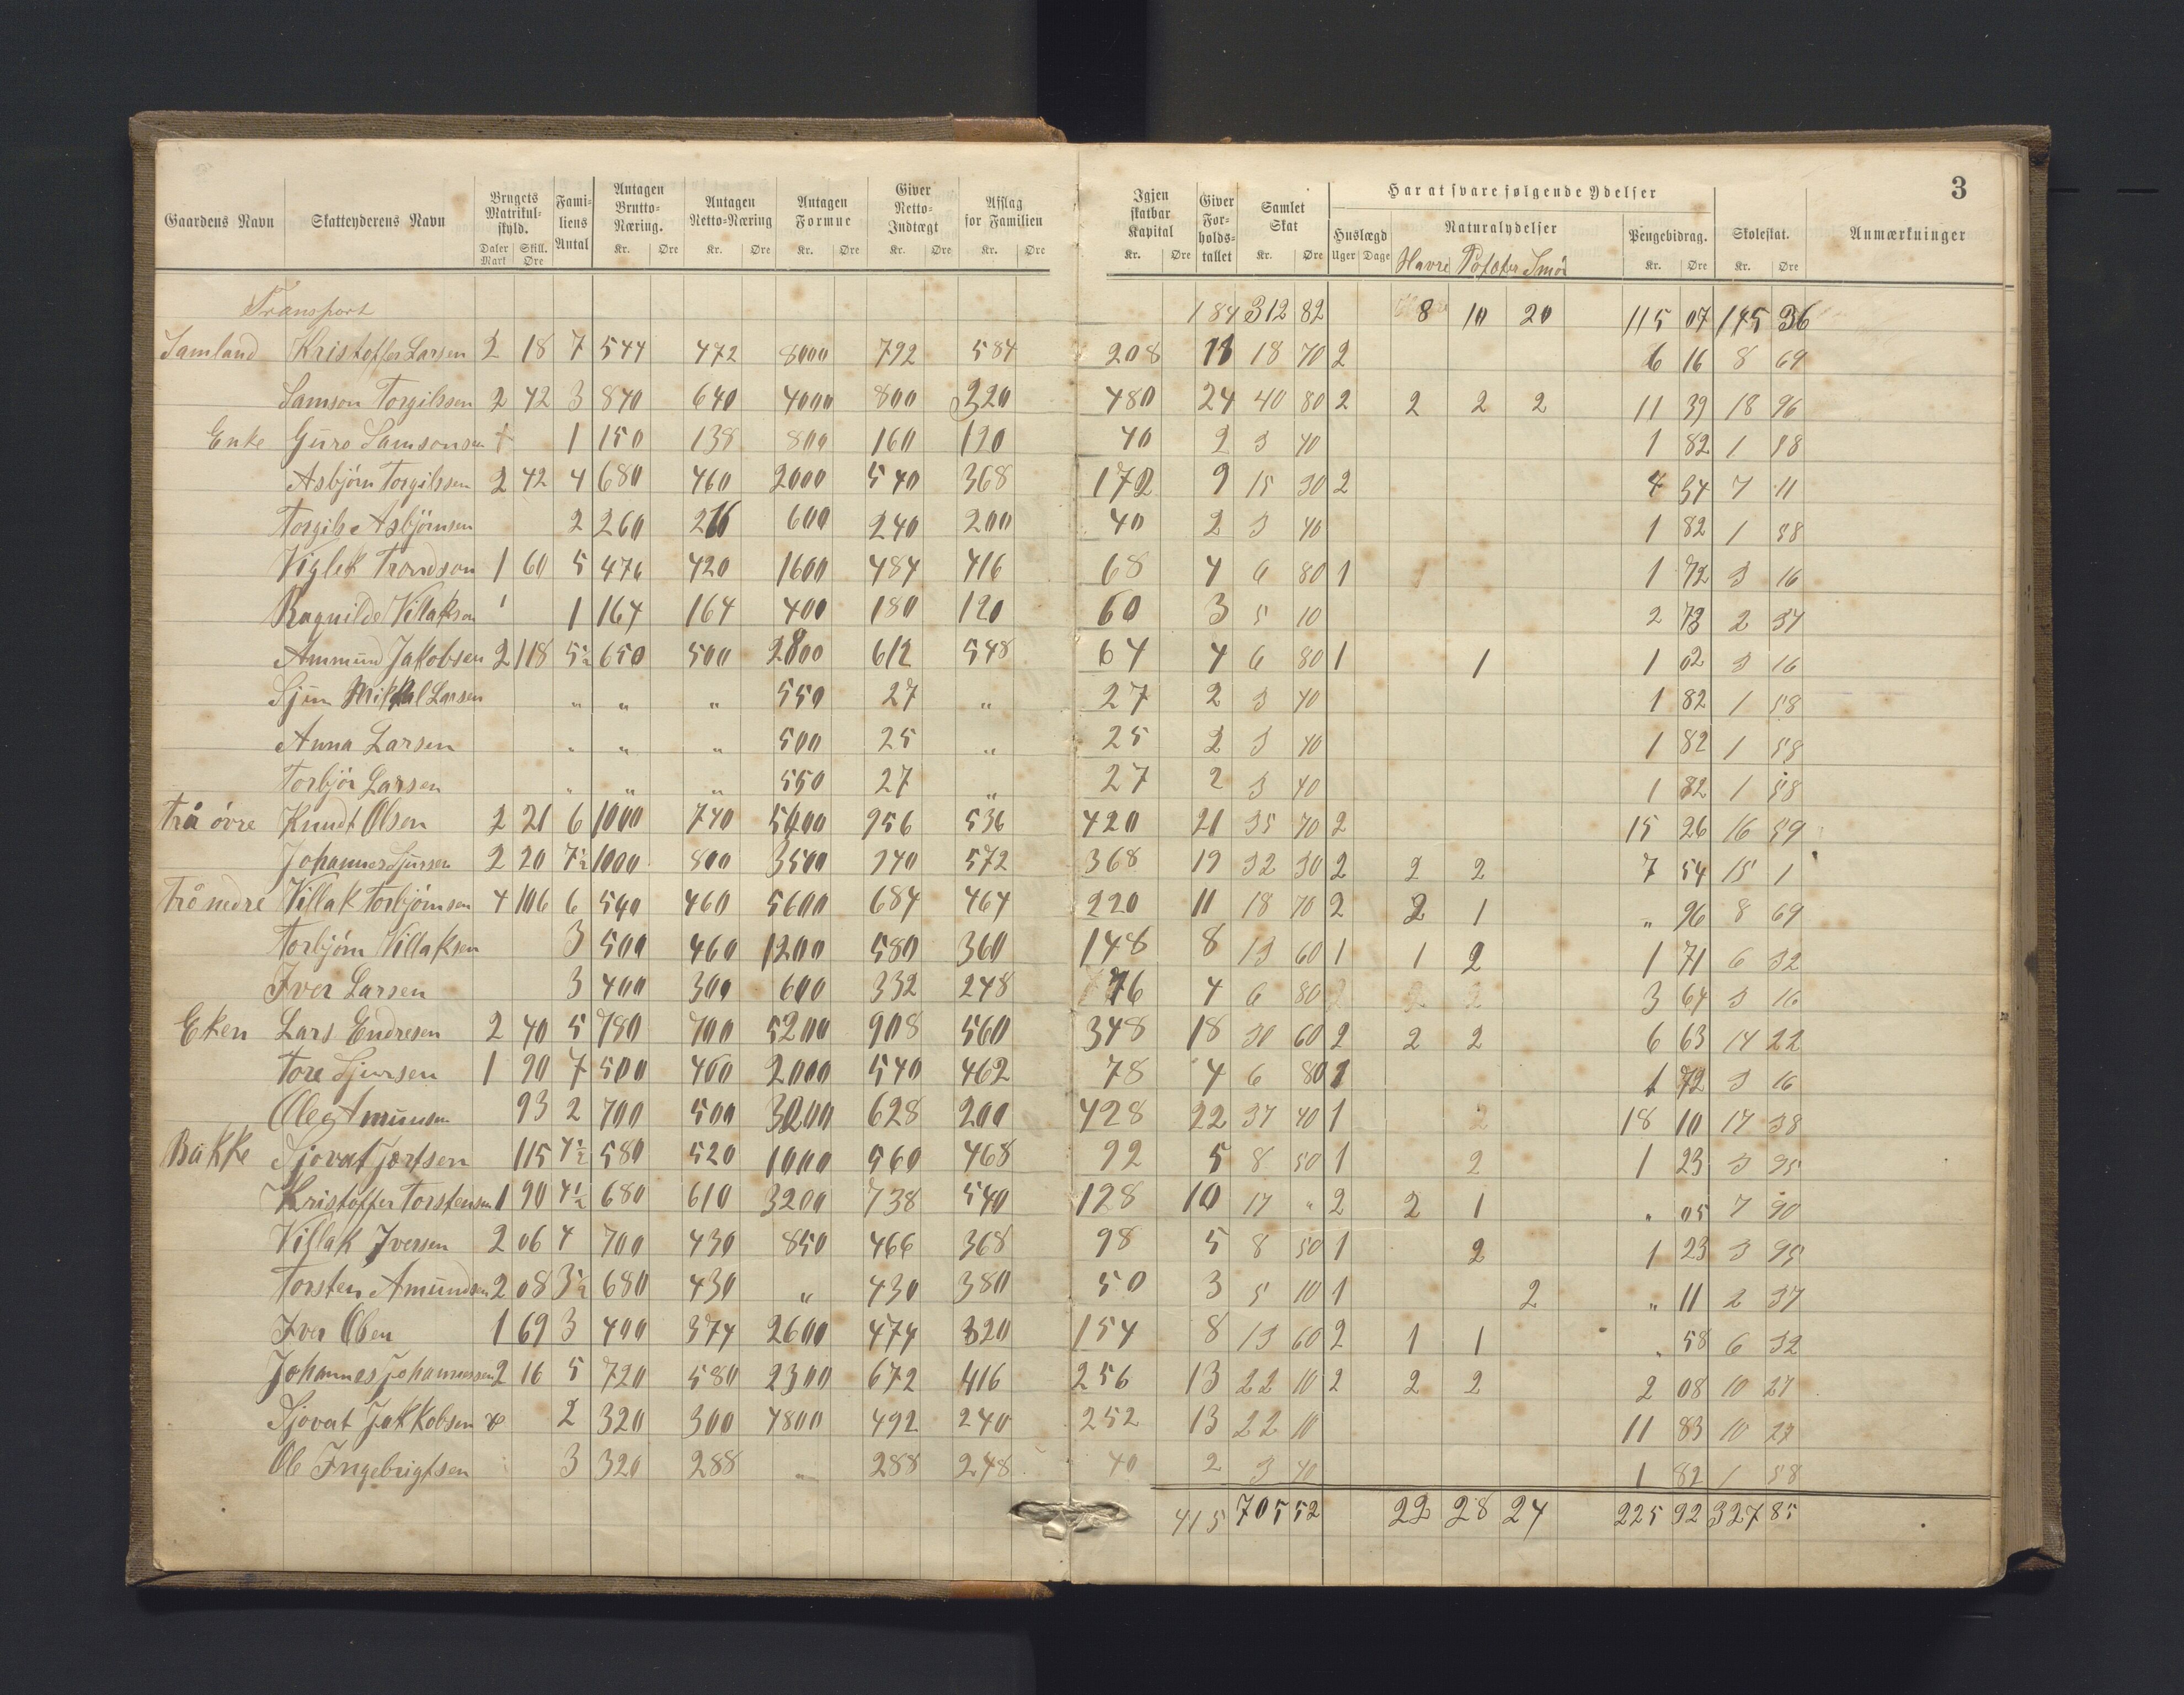 3
Gaardens Navn Skatteyderens Navn Brugets Matrikulskyld. Daler Mark Skill. Øre Familiens Antal Antagen Brutto-Næring. Kr. Øre Antagen Netto-Næring Kr. Øre Antagen Formue Kr. Øre Giver Netto-Indtægt Kr. Øre Afslag for Familien Kr. Øre Igjen skatbar Kapital Kr. Øre Giver Forholdstallet Samlet Skat Kr. Øre Har at svare følgende Ydelser Huslægd Uger Dage Naturalydelser Havre Poteter Smör Pengebidrag. Kr. Øre Skoleskat. Kr. Øre Anmærkninger
Transport 184 312 82 8 10 20 115 07 145 36
Samland Kristoffer Larsen 2 18 7 544 472 8000 792 584 208 11 18 70 2 6 16 8 69
Samson Torgilssen 2 42 3 840 640 4000 800 320 480 24 40 80 2 2 2 2 11 39 18 96
Enke Guro Samsonsen + 1 150 138 800 160 120 40 2 3 40 1 82 1 58
Asbjörn Torgilssen 2 42 4 680 460 2000 540 368 172 9 15 30 2 4 34 7 11
Torgils Asbjörnsen 2 260 216 600 240 200 40 2 3 40 1 82 1 58
Viglek Trondson 1 60 5 476 420 1600 484 416 68 4 6 80 1 1 72 3 16
Ragnilde Villakson 1 1 164 164 400 180 120 60 3 5 10 2 73 2 37
Ammund Jakobsen 2 118 5½ 650 500 2800 612 548 64 4 6 80 1 1 1 02 3 16
Sjur Mikkal Larsen " " " 550 27 " 27 2 3 40 1 82 1 58
Anna Larsen " " " 500 25 " 25 2 3 40 1 82 1 58
Torbjör Larsen " " " 550 27 " 27 2 3 40 1 82 1 58
Trå övre Knudt Olsen 2 21 6 1000 740 5400 956 536 420 21 35 70 2 15 26 16 59
Johannes Sjursen 2 20 7½ 1000 800 3500 940 572 368 19 32 30 2 2 2 7 54 15 1
Trå nedre Villak Torbjörnsen 4 106 6 540 460 5600 684 464 220 11 18 70 2 2 1 " 96 8 69
Torbjörn Villaksen 3 500 460 1200 580 360 148 8 13 60 1 1 2 1 71 6 32
Iver Larsen 3 400 300 600 332 248 76 4 6 80 2 2 2 3 64 3 16
Eken Lars Endresen 2 40 5 780 700 5200 908 560 348 18 30 60 2 2 2 6 63 14 22
Tore Sjursen 1 90 7 500 460 2000 540 462 78 4 6 80 1 1 72 3 16
Ole Amunsen 93 2 700 500 3200 628 200 428 22 37 40 1 2 18 10 17 38
Bakke Sjovat 115 4½ 580 520 1000 560 468 92 5 8 50 1 2 1 23 3 95
Kristoffer Torstensen 1 90 4½ 680 610 3200 738 540 128 10 17 " 2 2 1 " 05 7 90
Villak Iversen 2 06 4 700 430 850 466 368 98 5 8 50 1 2 1 23 3 95
Torsten Amundsen 2 08 3½ 680 430 " 430 380 50 3 5 10 1 2 " 11 2 37
Iver Olsen 1 69 3 400 374 2600 474 320 154 8 13 60 2 1 1 " 58 6 32
Johannes Johannessen 2 16 5 720 580 2300 672 416 256 13 22 10 2 2 2 2 08 10 27
Sjovat Jakkobsen 2 320 300 4800 492 240 252 13 22 10 11 83 10 27
Ole Ingebrigtsen 3 320 288 " 288 248 40 2 3 40 1 82 1 58
415 705 52 22 28 24 225 92 327 85